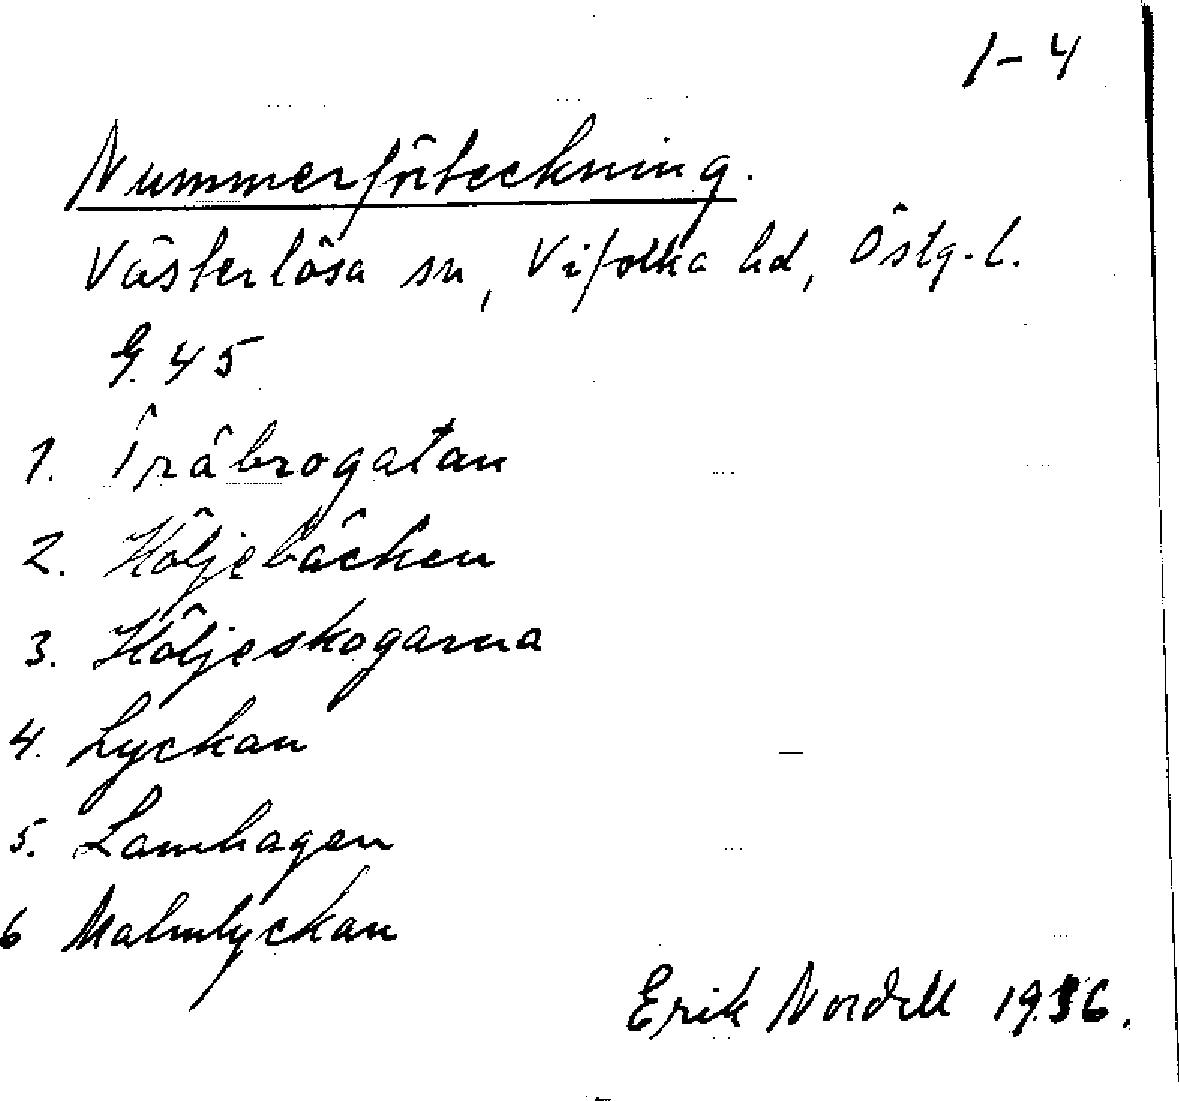 1-4
Nummerförteckning.
Västerlösa sn, Vifolka hd, Östg.l.
G. 45
1. Träbrogatan
2. Höljebäcken
3. Höljeskogarna
4. Lyckan
5. Lamhagen
6 Malmlyckan
Erik Nordell 1936.